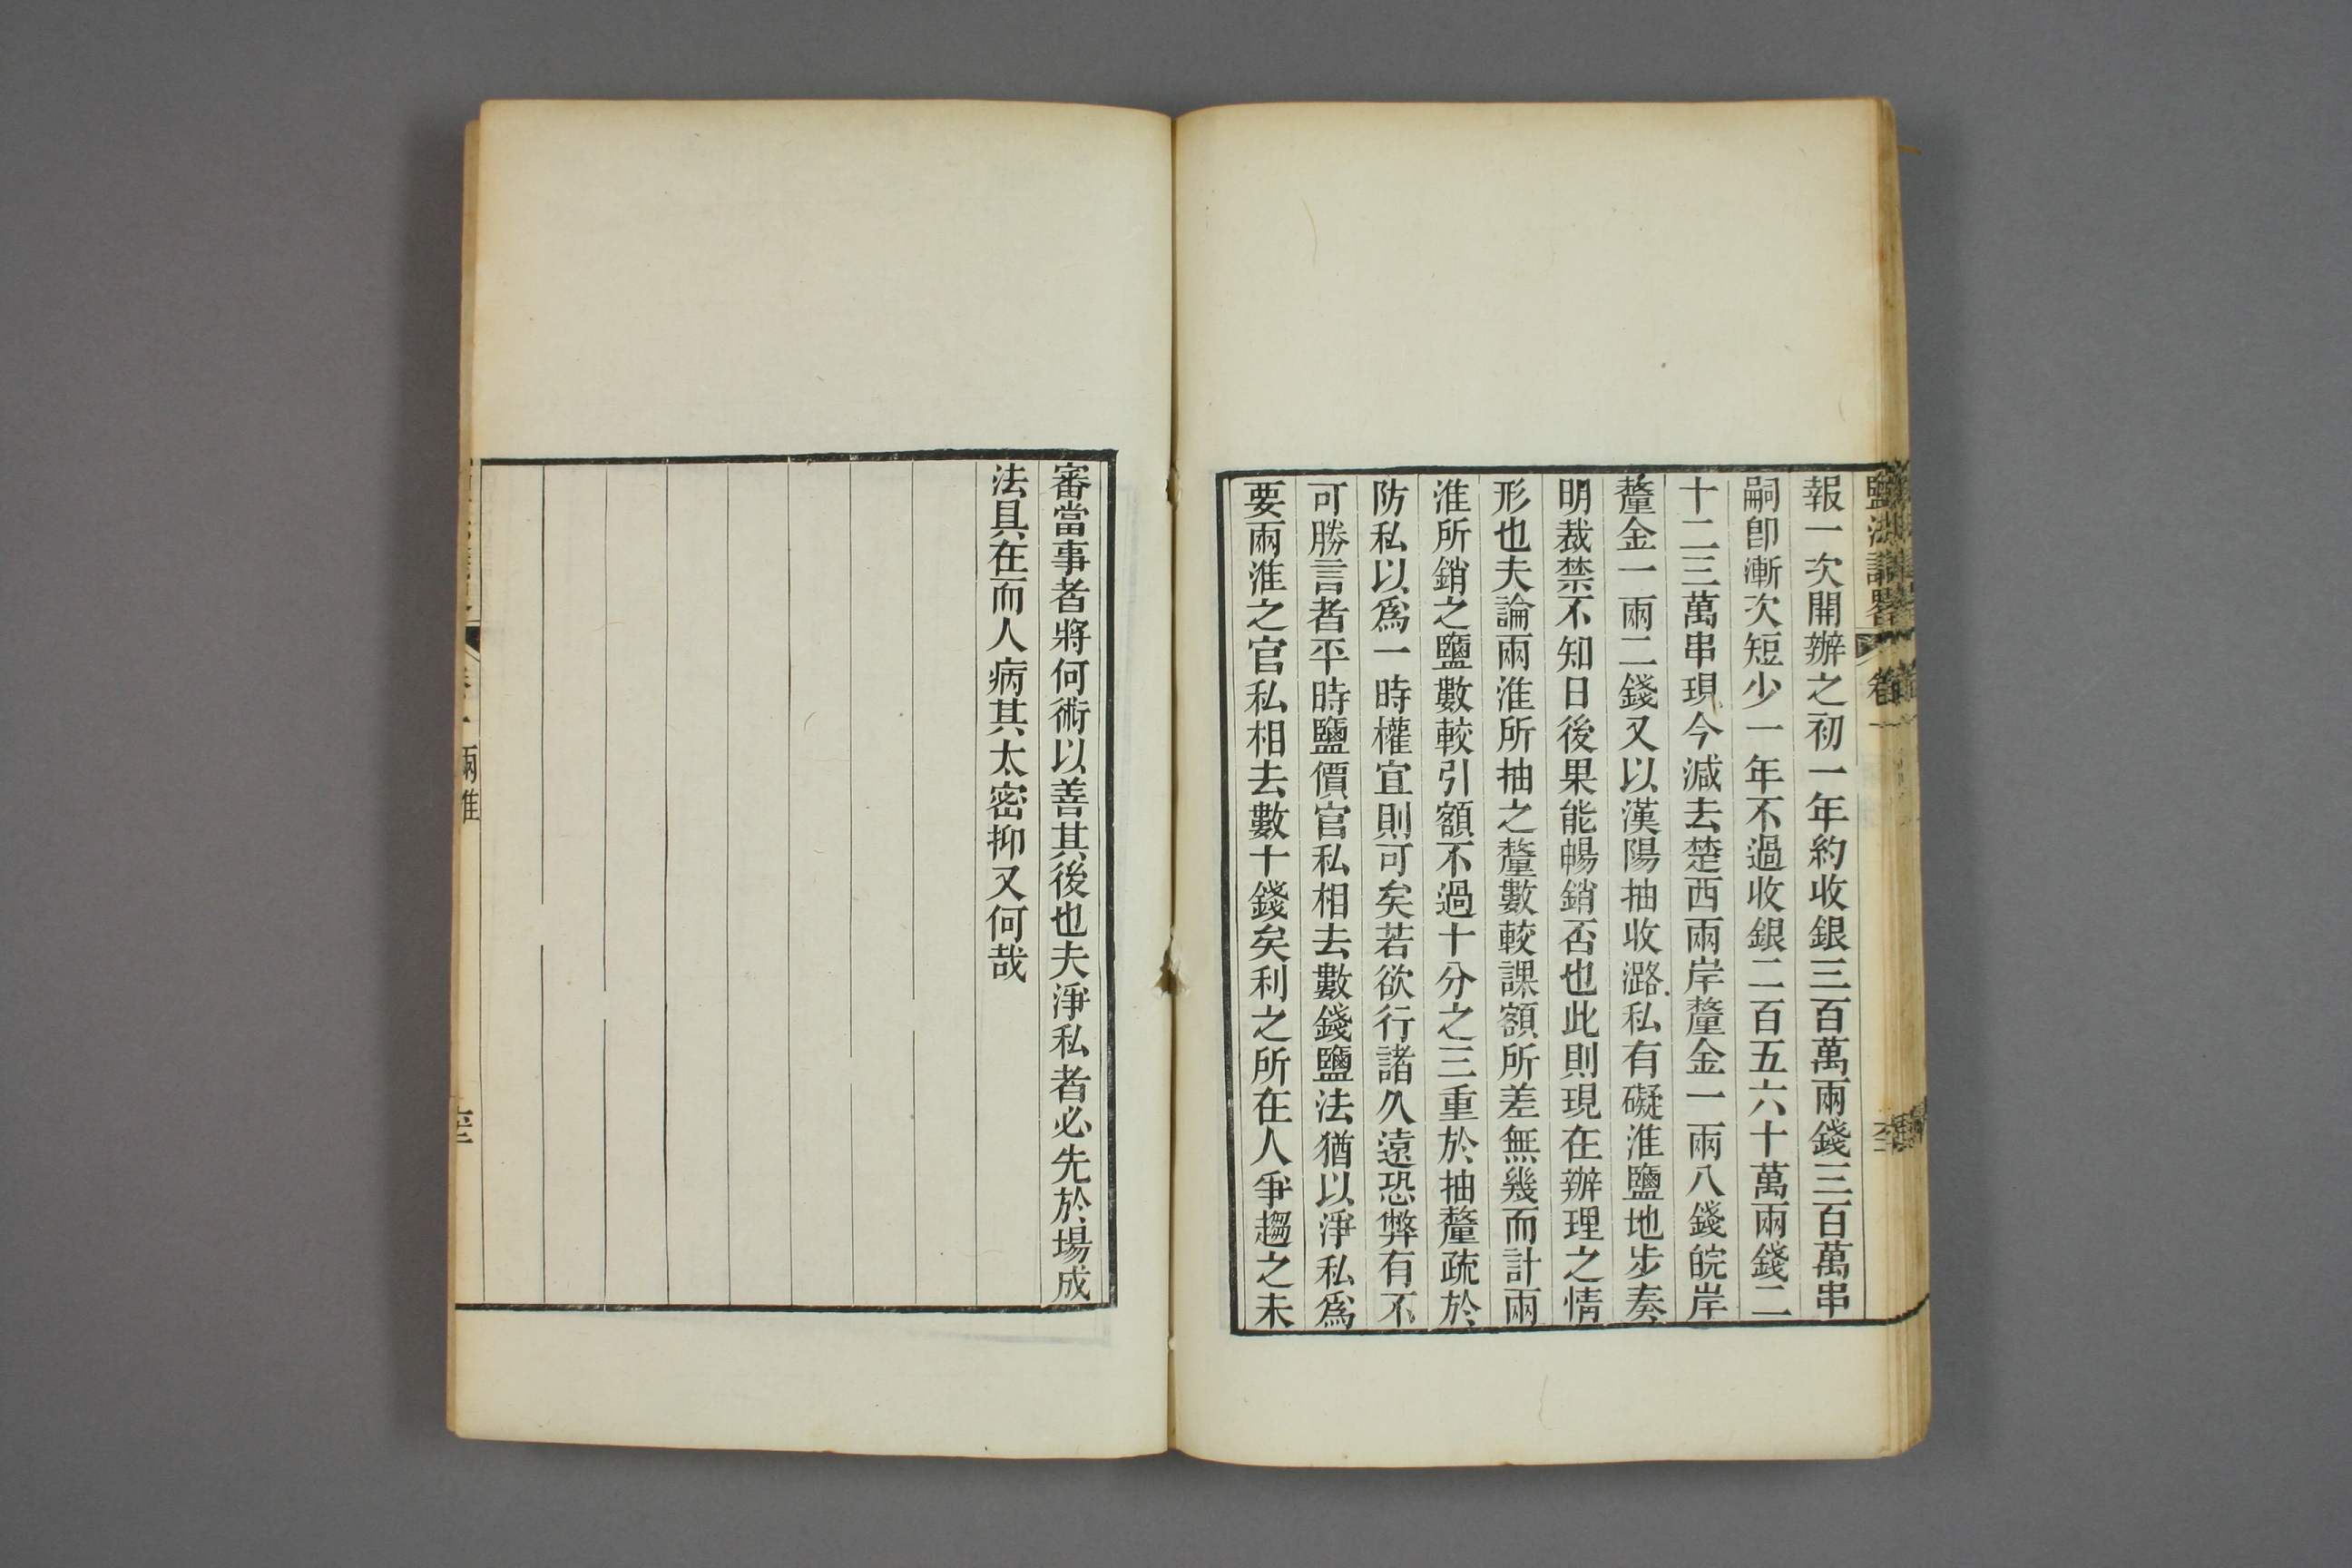 鹽法議畧
卷一
報一次開辦之初一年約收銀三百萬兩錢三百萬串
嗣卽漸次短少一年不過收銀二百五六十萬兩錢二
十二三萬串現今減去楚西兩岸釐金一兩八錢皖岸
釐金一兩二錢又以漢陽抽收潞私有礙淮鹽地步奏
明裁禁不知日後果能暢銷否也此則現在辦理之情
形也夫論兩淮所抽之釐數較課額所差無幾而計兩
淮所銷之鹽數較引額不過十分之三重於抽釐疏於
防私以爲一時權宜則可矣若欲行諸久遠恐弊有不
可勝言者平時鹽價官私相去數錢鹽法猶以淨私爲
要兩淮之官私相去數十錢矣利之所在人爭趨之未
審當事者將何術以善其後也夫淨私者必先於場成
法具在而人病其太密抑又何哉
卷一 兩淮